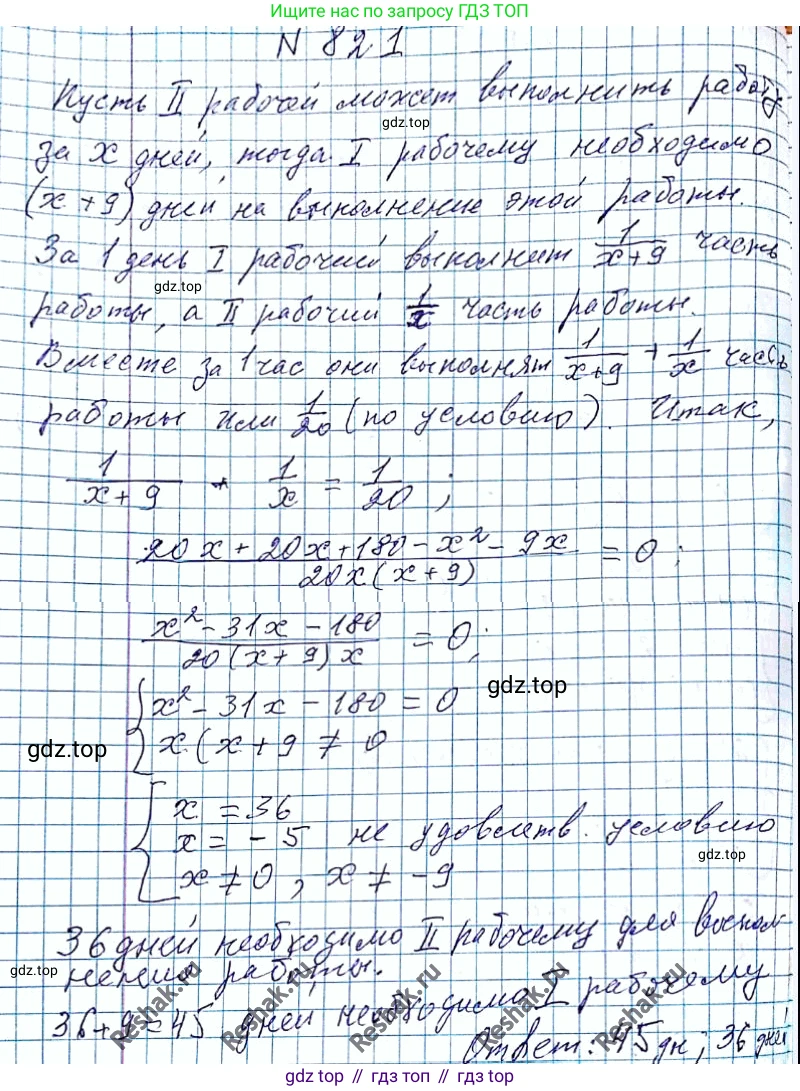 Ищите нас по запросу ГДЗ ТОП
N 821
Пусть II рабочий может выполнить работу
gdz.top
за x дней, тогда I рабочему необходимо
(x+9) дней на выполнение этой работы.
За 1 день I рабочий выполнит 1/(x+9) часть
gdz.top
работы, а II рабочий 1/x часть работы.
Вместе за 1 час они выполнят 1/(x+9) + 1/x часть
работы или 1/20 (по условию). Итак,
1/(x+9) + 1/x = 1/20 ;
(20x + 20x + 180 - x² - 9x)/(20x(x+9)) = 0 ;
(x² - 31x - 180)/(20(x+9)x) = 0 ;
{ x² - 31x - 180 = 0
gdz.top
x (x+9 ≠ 0
gdz.top
[ x = 36
x = - 5 не удовлетв. условию
gdz.top
x ≠ 0, x ≠ -9
36 дней необходимо II рабочему для воспол-
gdz.top
нения работы.
36+9=45 дней необходимо I рабочему
Reshak.ru
Reshak.ru
Reshak.ru
Reshak.ru
Ответ: 45 дн; 36 дней
gdz.top // гдз топ // gdz.top